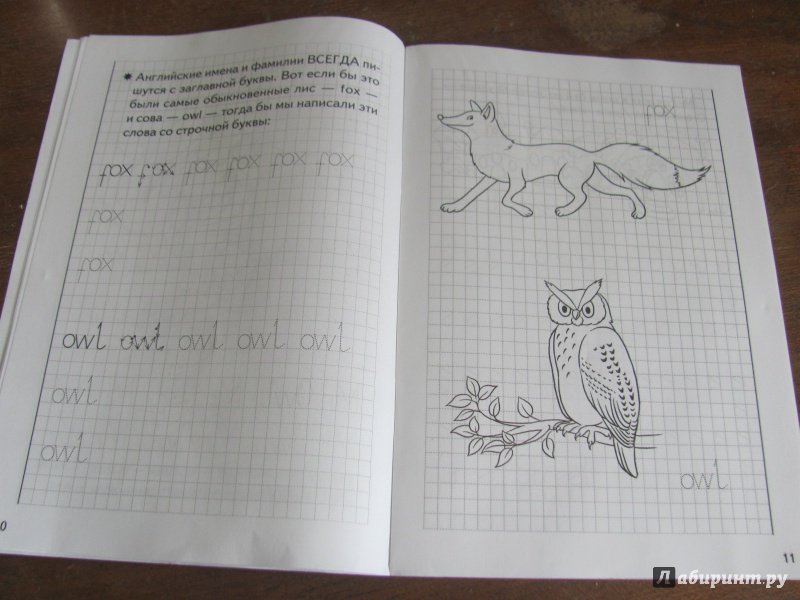 ✷ Английские имена и фамилии ВСЕГДА пи-
шутся с заглавной буквы. Вот если бы это
были самые обыкновенные лис — fox —
и сова — owl — тогда бы мы написали эти
слова со строчной буквы:
fox fox fox fox fox fox
fox
fox
owl owl owl owl owl
owl
owl
0
fox
owl
11
Лабиринт.ру